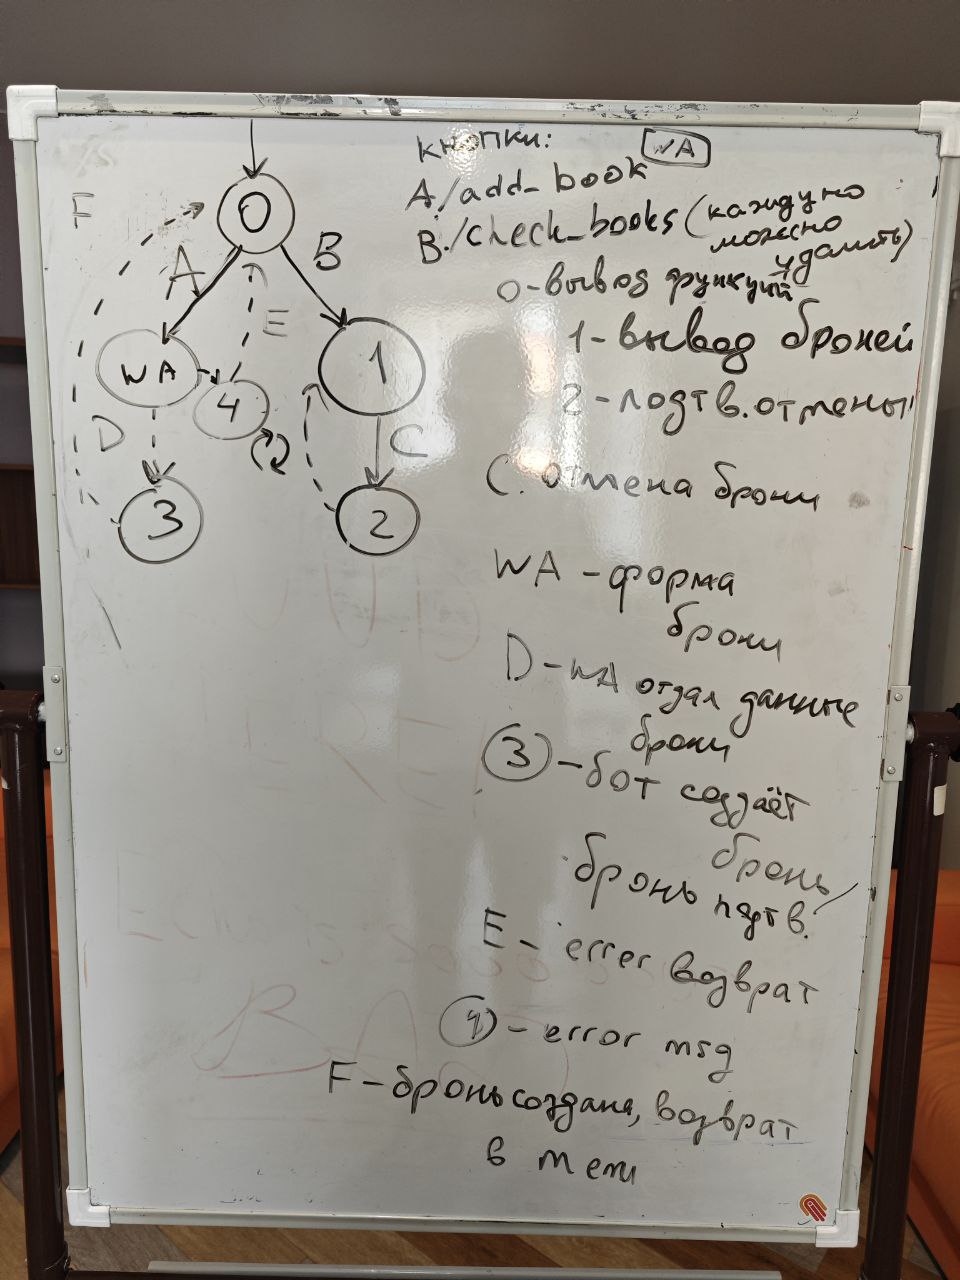 F
0
A
B
E
WA
4
1
D
C
3
2
кнопки:
WA
A./add_book
B./check_books (каждую
можно
удалить)
0-вывод функций
1-вывод броней
2-подтв.отмены
C. отмена брони
WA -форма
брони
D-WA отдал данные
брони
3 -бот создаёт
бронь
бронь подтв.
E- error возврат
4 - error msg
F-бронь создана, возврат
в меню